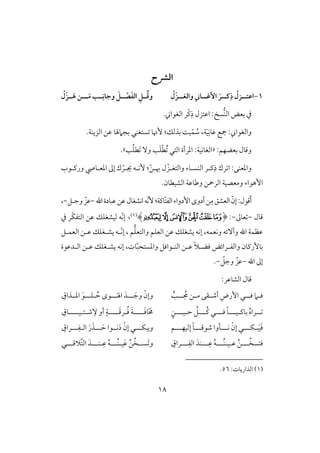 الشرح
١- اعتَـزِلْ ذِكْـرَ الأغـاني والغَـزَلْ وقُـلِ الفَصْـلَ وجانِـبْ مَـنْ هَـزَلْ
في بعض النُّسخ: اعتزل ذِكْرَ الغواني.
والغواني: جمع غانِيَة، سُمِّيت بذلك؛ لأنها تستغني بجمالها عن الزينة.
وقال بعضهم: «الغانية: المرأة التي تُطلَب ولا تَطلُب».
والمعنى: اترك ذكر النساء والتغزُّل بهنّ؛ لأنه يجرُّك إلى المعاصي وركوب
الأهواء ومعصية الرحمن وطاعة الشيطان.
أقول: إن العشق مِن أدوى الأدواء الفتّاكة؛ لأنه انشغال عن عبادة الله -عزّ وجل-،
قال -تعالى-: ﴿ وَمَا خَلَقْتُ الْجِنَّ وَالْإِنسَ إِلَّا لِيَعْبُدُونِ ﴾(١)، إنّه ليشغلك عن التفكّر في
عظمة الله وآلائه ونعمه، إنه يشغلك عن العلم والتعلُّم، إنّه يشغلك عن العمل
بالأركان والفرائض فضلاً عن النوافل والمستحبّات، إنه يشغلك عن الدعوة
إلى الله -عزّ وجلّ-.
قال الشاعر:
فـما فـي الأرضِ أشـقى مـن مُحِـبٍّ وإنْ وَجَـدَ الهَـوى حُلـوَ المَـذاقِ
تـراهُ باكيـاً فـي كُـلِّ حـينٍ مَخافَـةَ فُرقَـةٍ أو لاشـتياقِ
فَيَبكـي إنْ نـأَوا شوقـاً إليهـم ويبكـي إنْ دَنَـوا حَـذَرَ الفِـراقِ
فتَسـخُنُ عينُـهُ عِنـدَ الفِـراقِ وتَسـخُنُ عَينُـهُ عِنـدَ التَّلاقـي
(١) الذاريات: ٥٦.
١٨